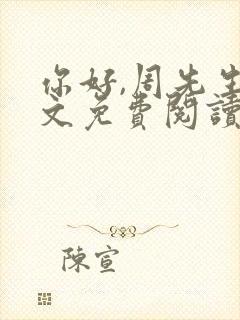 你好,周先生
文免費閱讀
陳宣